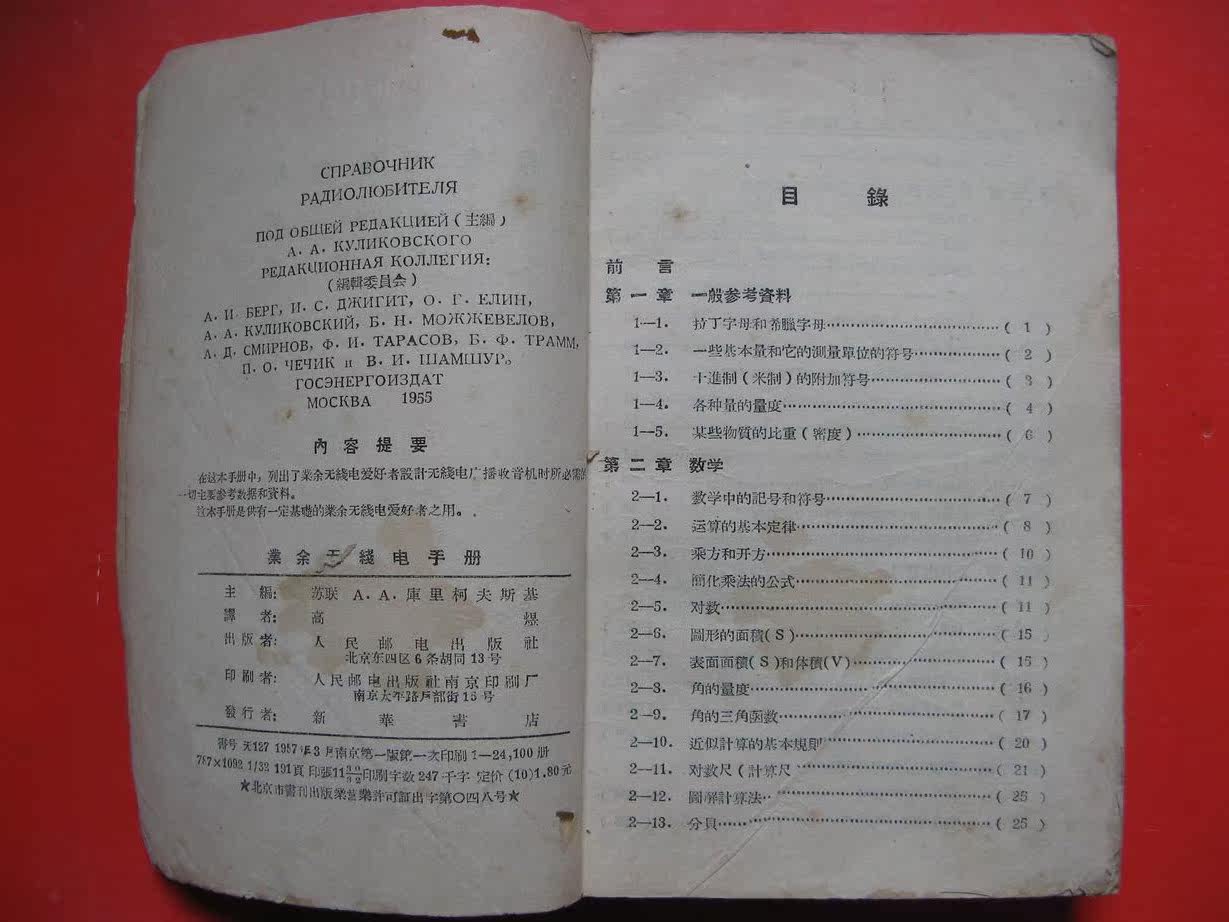 СПРАВОЧНИК
РАДИОЛЮБИТЕЛЯ
ПОД ОБЩЕЙ РЕДАКЦИЕЙ (主編)
А. А. КУЛИКОВСКОГО
РЕДАКЦИОННАЯ КОЛЛЕГИЯ:
(編輯委員会)
А. И. БЕРГ, И. С. ДЖИГИТ, О. Г. ЕЛИН,
А. А. КУЛИКОВСКИЙ, Б. Н. МОЖЖЕВЕЛОВ,
А. Д. СМИРНОВ, Ф. И. ТАРАСОВ, Б. Ф. ТРАММ,
П. О. ЧЕЧИК и В. И. ШАМШУР。
ГОСЭНЕРГОИЗДАТ
МОСКВА 1955
內容提要
在这本手册中，列出了業余无綫电爱好者設計无綫电广播收音机时所必需的
一切主要参考数据和資料。
这本手册是供有一定基礎的業余无綫电爱好者之用。
業余无綫电手册
主編：苏联 A．A．庫里柯夫斯基
譯者：高煜
出版者：人民邮电出版社
北京东四区6条胡同13号
印刷者：人民邮电出版社南京印刷厂
南京太平路戶部街15号
發行者：新華書店
書号 天127 1957年3月南京第一版第一次印刷 1—24,100册
787×1092 1/32 191頁 印張11 30/32 印刷字数 247 千字 定价 (10)1.80元
★北京市書刊出版業营業許可証出字第〇四八号★
目錄
前言
第一章 一般参考資料
1—1. 拉丁字母和希臘字母……( 1 )
1—2. 一些基本量和它的測量單位的符号……( 2 )
1—3. 十進制（米制）的附加符号……( 3 )
1—4. 各种量的量度……( 4 )
1—5. 某些物質的比重（密度）……( 6 )
第二章 数学
2—1. 数学中的記号和符号……( 7 )
2—2. 运算的基本定律……( 8 )
2—3. 乘方和开方……( 10 )
2—4. 簡化乘法的公式……( 11 )
2—5. 对数……( 11 )
2—6. 圖形的面積(S)……( 15 )
2—7. 表面面積(S)和体積(V)……( 15 )
2—8. 角的量度……( 16 )
2—9. 角的三角函数……( 17 )
2—10. 近似計算的基本規則……( 20 )
2—11. 对数尺（計算尺……( 21 )
2—12. 圖解計算法……( 25 )
2—13. 分貝……( 25 )